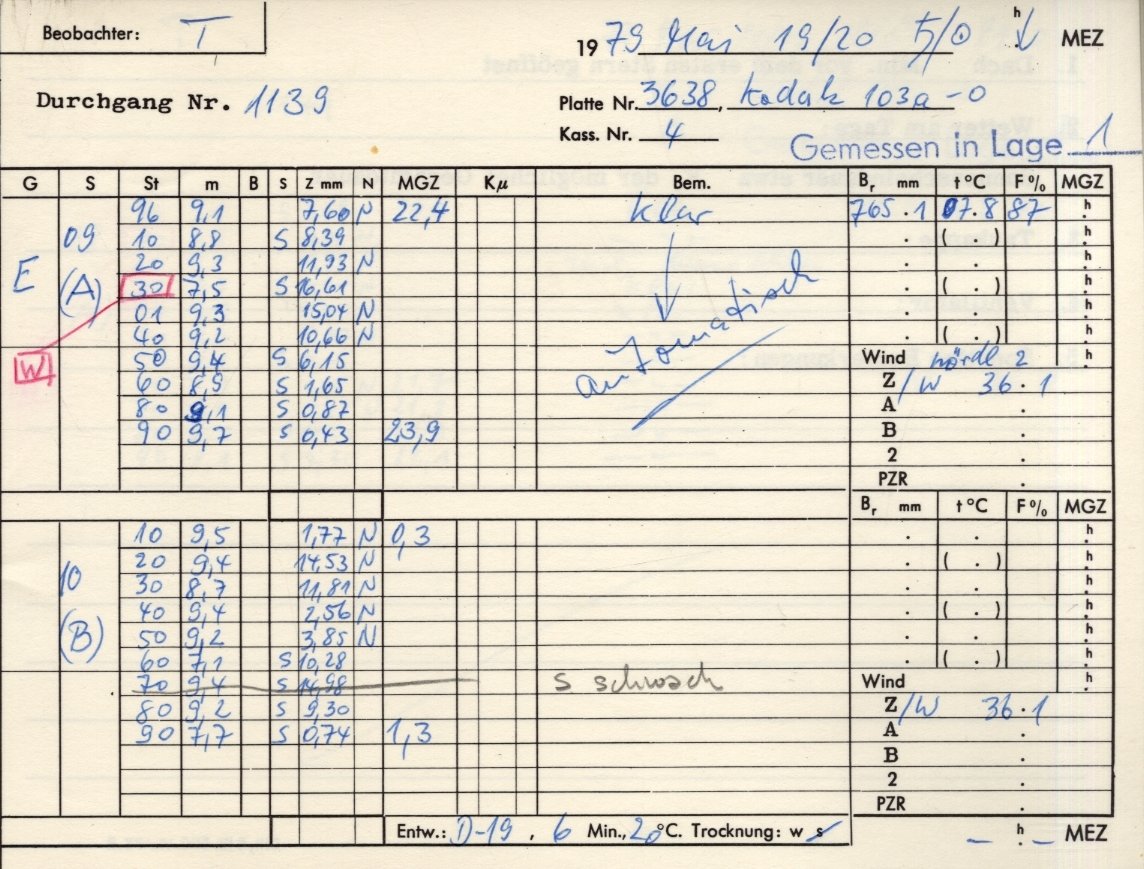 Beobachter: T
1979 Mai 19/20 5/0 h MEZ
Durchgang Nr. 1139
Platte Nr. 3638, Kodak 103a-O
Kass. Nr. 4
Gemessen in Lage 1
G S St m B S Z mm N MGZ Kµ Bem. Br mm t°C F% MGZ
96 9,1 7,60 N 22,4 klar 765.1 07.8 87 h
09 10 8,8 S 8,39 . ( . ) h
20 9,3 11,93 N . . h
E (A) 30 7,5 S 16,61 . ( . ) h
01 9,3 15,04 N automatisch . . h
40 9,2 10,66 N . ( . ) h
W 50 9,4 S 6,15 Wind nördl 2 h
60 8,9 S 1,65 Z/W 36.1
80 9,1 S 0,87 A .
90 9,7 S 0,43 23,9 B .
2 .
PZR .
Br mm t°C F% MGZ
10 9,5 1,77 N 0,3 . . h
20 9,4 14,53 N . ( . ) h
10 30 8,7 11,81 N . . h
40 9,4 2,56 N . ( . ) h
(B) 50 9,2 3,85 N . . h
60 7,1 S 10,28 . ( . ) h
70 9,4 S 14,98 S schwach Wind h
80 9,2 S 9,30 Z/W 36.1
90 7,7 S 0,74 1,3 A .
B .
2 .
PZR .
Entw.: D-19, 6 Min., 20°C. Trocknung: w s
– h – MEZ